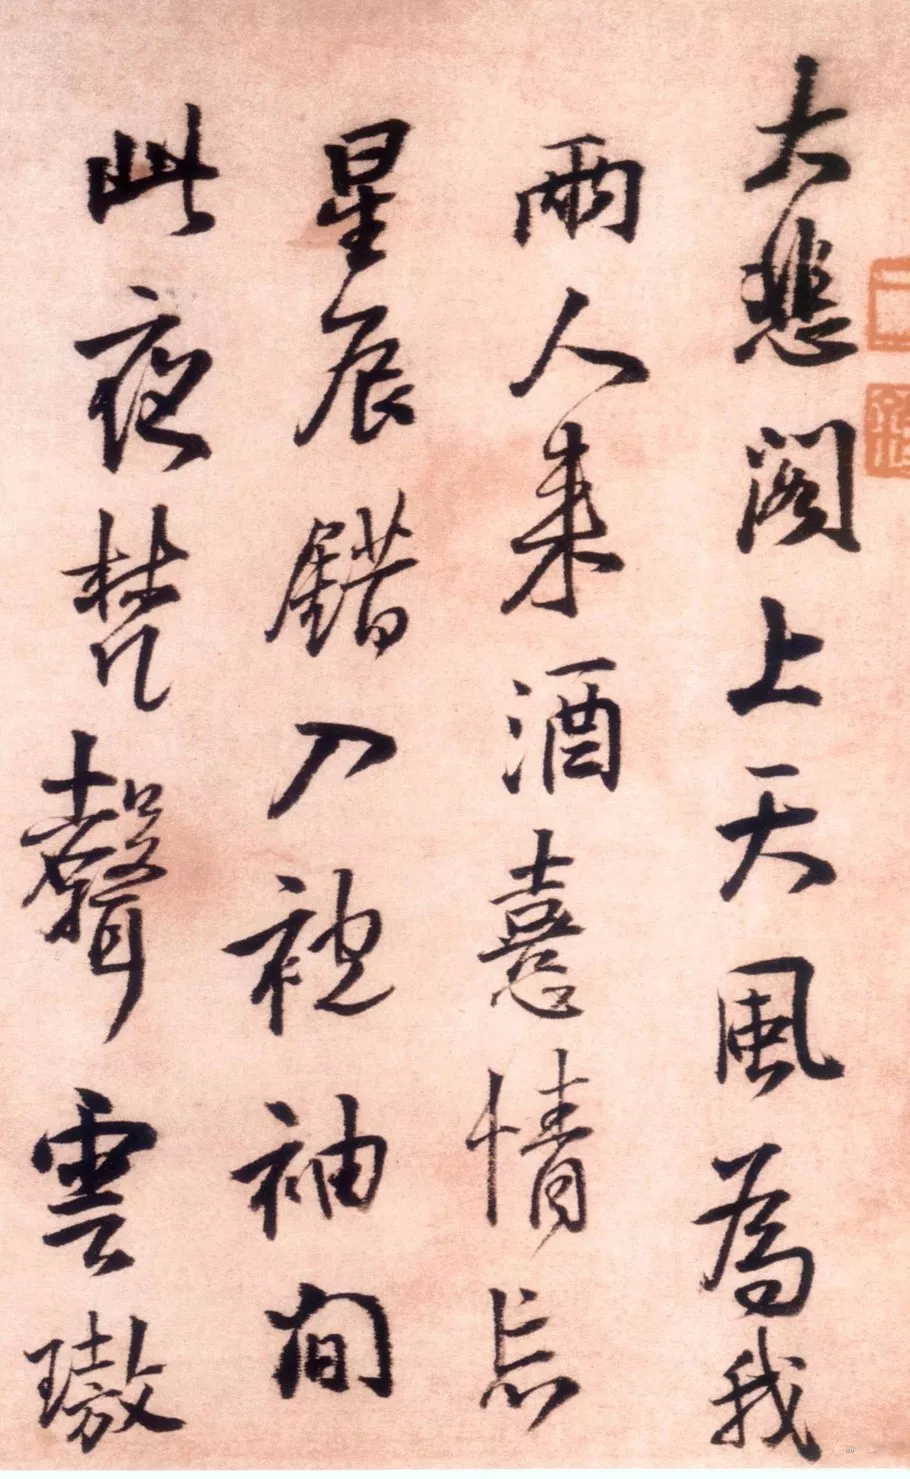 大悲閣上天風為我
兩人來酒憙情忘
星辰錯入袍袖間
此夜梵聲雲璈